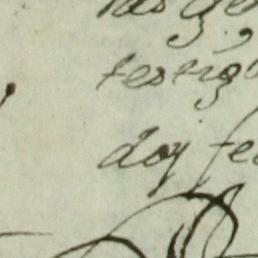 testig
doy fe